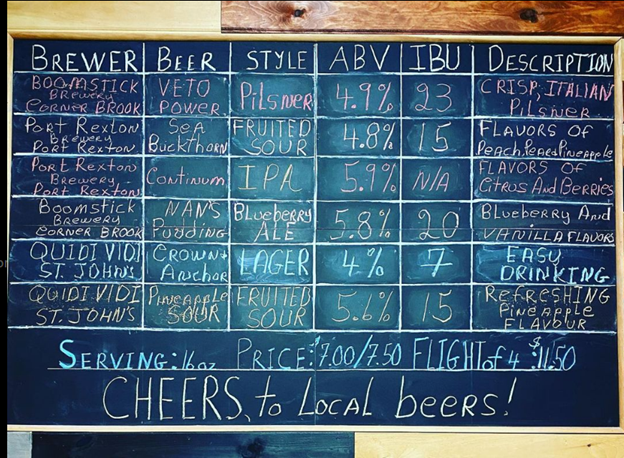 BREWER BEER STYLE ABV IBU DESCRIPTION
BOOMSTICK BREWERY CORNER BROOK VETO POWER PILSNER 4.9% 23 CRISP, ITALIAN PILSNER
PORT REXTON BREWERY PORT REXTON SEA BUCKTHORN FRUITED SOUR 4.8% 15 FLAVORS OF PEACH, PEAR & PINEAPPLE
PORT REXTON BREWERY PORT REXTON CONTINUUM IPA 5.9% N/A FLAVORS OF CITRUS AND BERRIES
BOOMSTICK BREWERY CORNER BROOK NAN'S PUDDING BLUEBERRY ALE 5.8% 20 BLUEBERRY AND VANILLA FLAVORS
QUIDI VIDI ST. JOHN'S CROWN + ANCHOR LAGER 4% 7 EASY DRINKING
QUIDI VIDI ST. JOHN'S PINEAPPLE SOUR FRUITED SOUR 5.6% 15 REFRESHING PINEAPPLE FLAVOUR
SERVING: 16oz PRICE: $7.00/7.50 FLIGHT of 4: $11.50
CHEERS, to LOCAL beers!